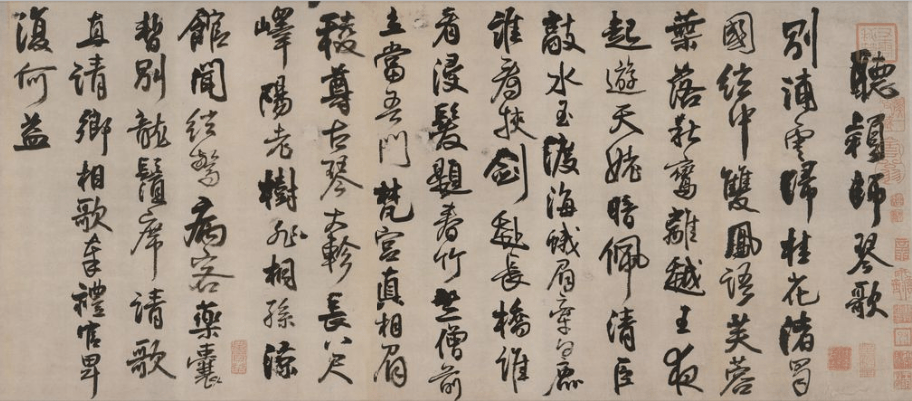 聽穎師琴歌
別浦雲歸桂花渚蜀
國絃中雙鳳語芙蓉
葉落秋鸞離越王夜
起遊天姥暗佩清臣
敲水玉渡海蛾眉牽白鹿
誰看挾劍赴長橋誰
看浸髮題春竹竺僧前
立當吾門梵宮真相眉
稜尊古琴大軫長八尺
嶧陽老樹非桐孫涼
館聞絃驚病客藥囊
暫別龍鬚席請歌
直請卿相歌奉禮官卑
復何益